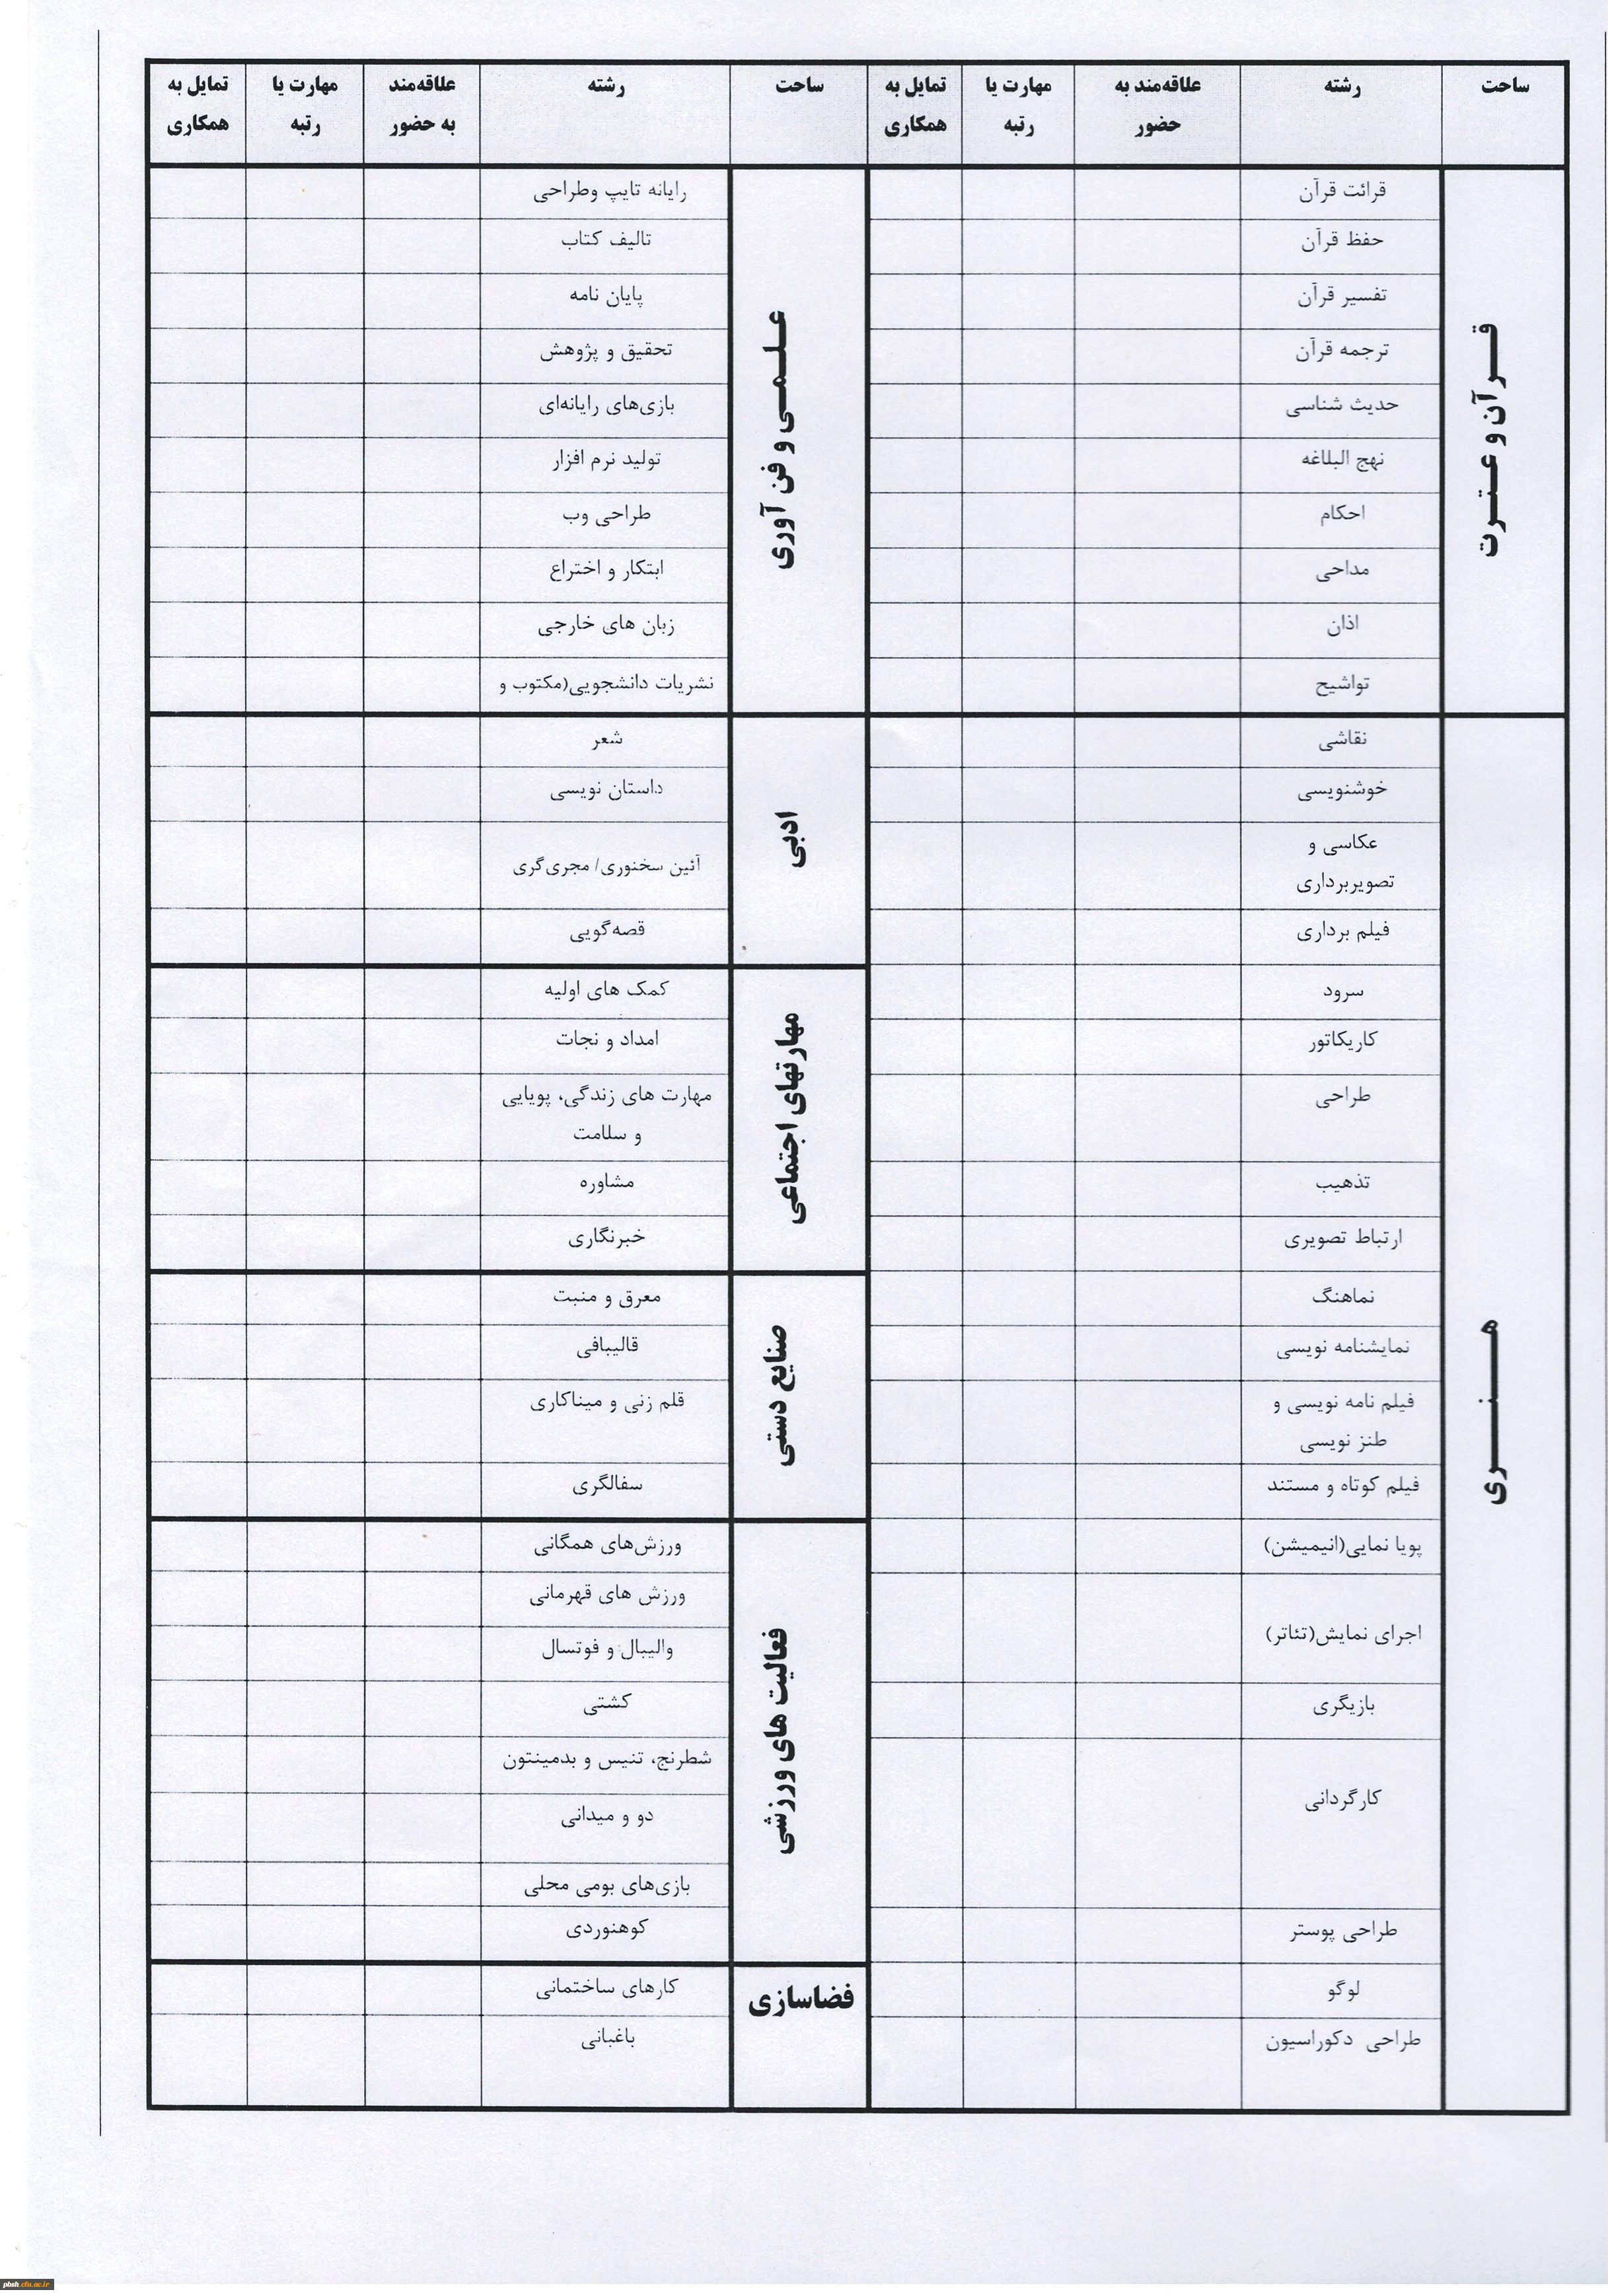 ساحت
رشته
علاقه‌مند به
حضور
مهارت یا
رتبه
تمایل به
همکاری
ساحت
رشته
علاقه‌مند
به حضور
مهارت یا
رتبه
تمایل به
همکاری
قـــرآن و عـتـــرت
قرائت قرآن
حفظ قرآن
تفسیر قرآن
ترجمه قرآن
حدیث شناسی
نهج البلاغه
احکام
مداحی
اذان
تواشیح
هـــنـــری
نقاشی
خوشنویسی
عکاسی و
تصویربرداری
فیلم برداری
سرود
کاریکاتور
طراحی
تذهیب
ارتباط تصویری
نماهنگ
نمایشنامه نویسی
فیلم نامه نویسی و
طنز نویسی
فیلم کوتاه و مستند
پویا نمایی(انیمیشن)
اجرای نمایش(تئاتر)
بازیگری
کارگردانی
طراحی پوستر
لوگو
طراحی دکوراسیون
عـلـمـی و فن آوری
رایانه تایپ وطراحی
تالیف کتاب
پایان نامه
تحقیق و پژوهش
بازی‌های رایانه‌ای
تولید نرم افزار
طراحی وب
ابتکار و اختراع
زبان های خارجی
نشریات دانشجویی(مکتوب و
ادبی
شعر
داستان نویسی
آئین سخنوری/ مجری‌گری
قصه‌گویی
مهارتهای اجتماعی
کمک های اولیه
امداد و نجات
مهارت های زندگی، پویایی
و سلامت
مشاوره
خبرنگاری
صنایع دستی
معرق و منبت
قالیبافی
قلم زنی و میناکاری
سفالگری
فعالیت های ورزشی
ورزش‌های همگانی
ورزش های قهرمانی
والیبال و فوتسال
کشتی
شطرنج، تنیس و بدمینتون
دو و میدانی
بازی‌های بومی محلی
کوهنوردی
فضاسازی
کارهای ساختمانی
باغبانی
pbsh.cfu.ac.ir